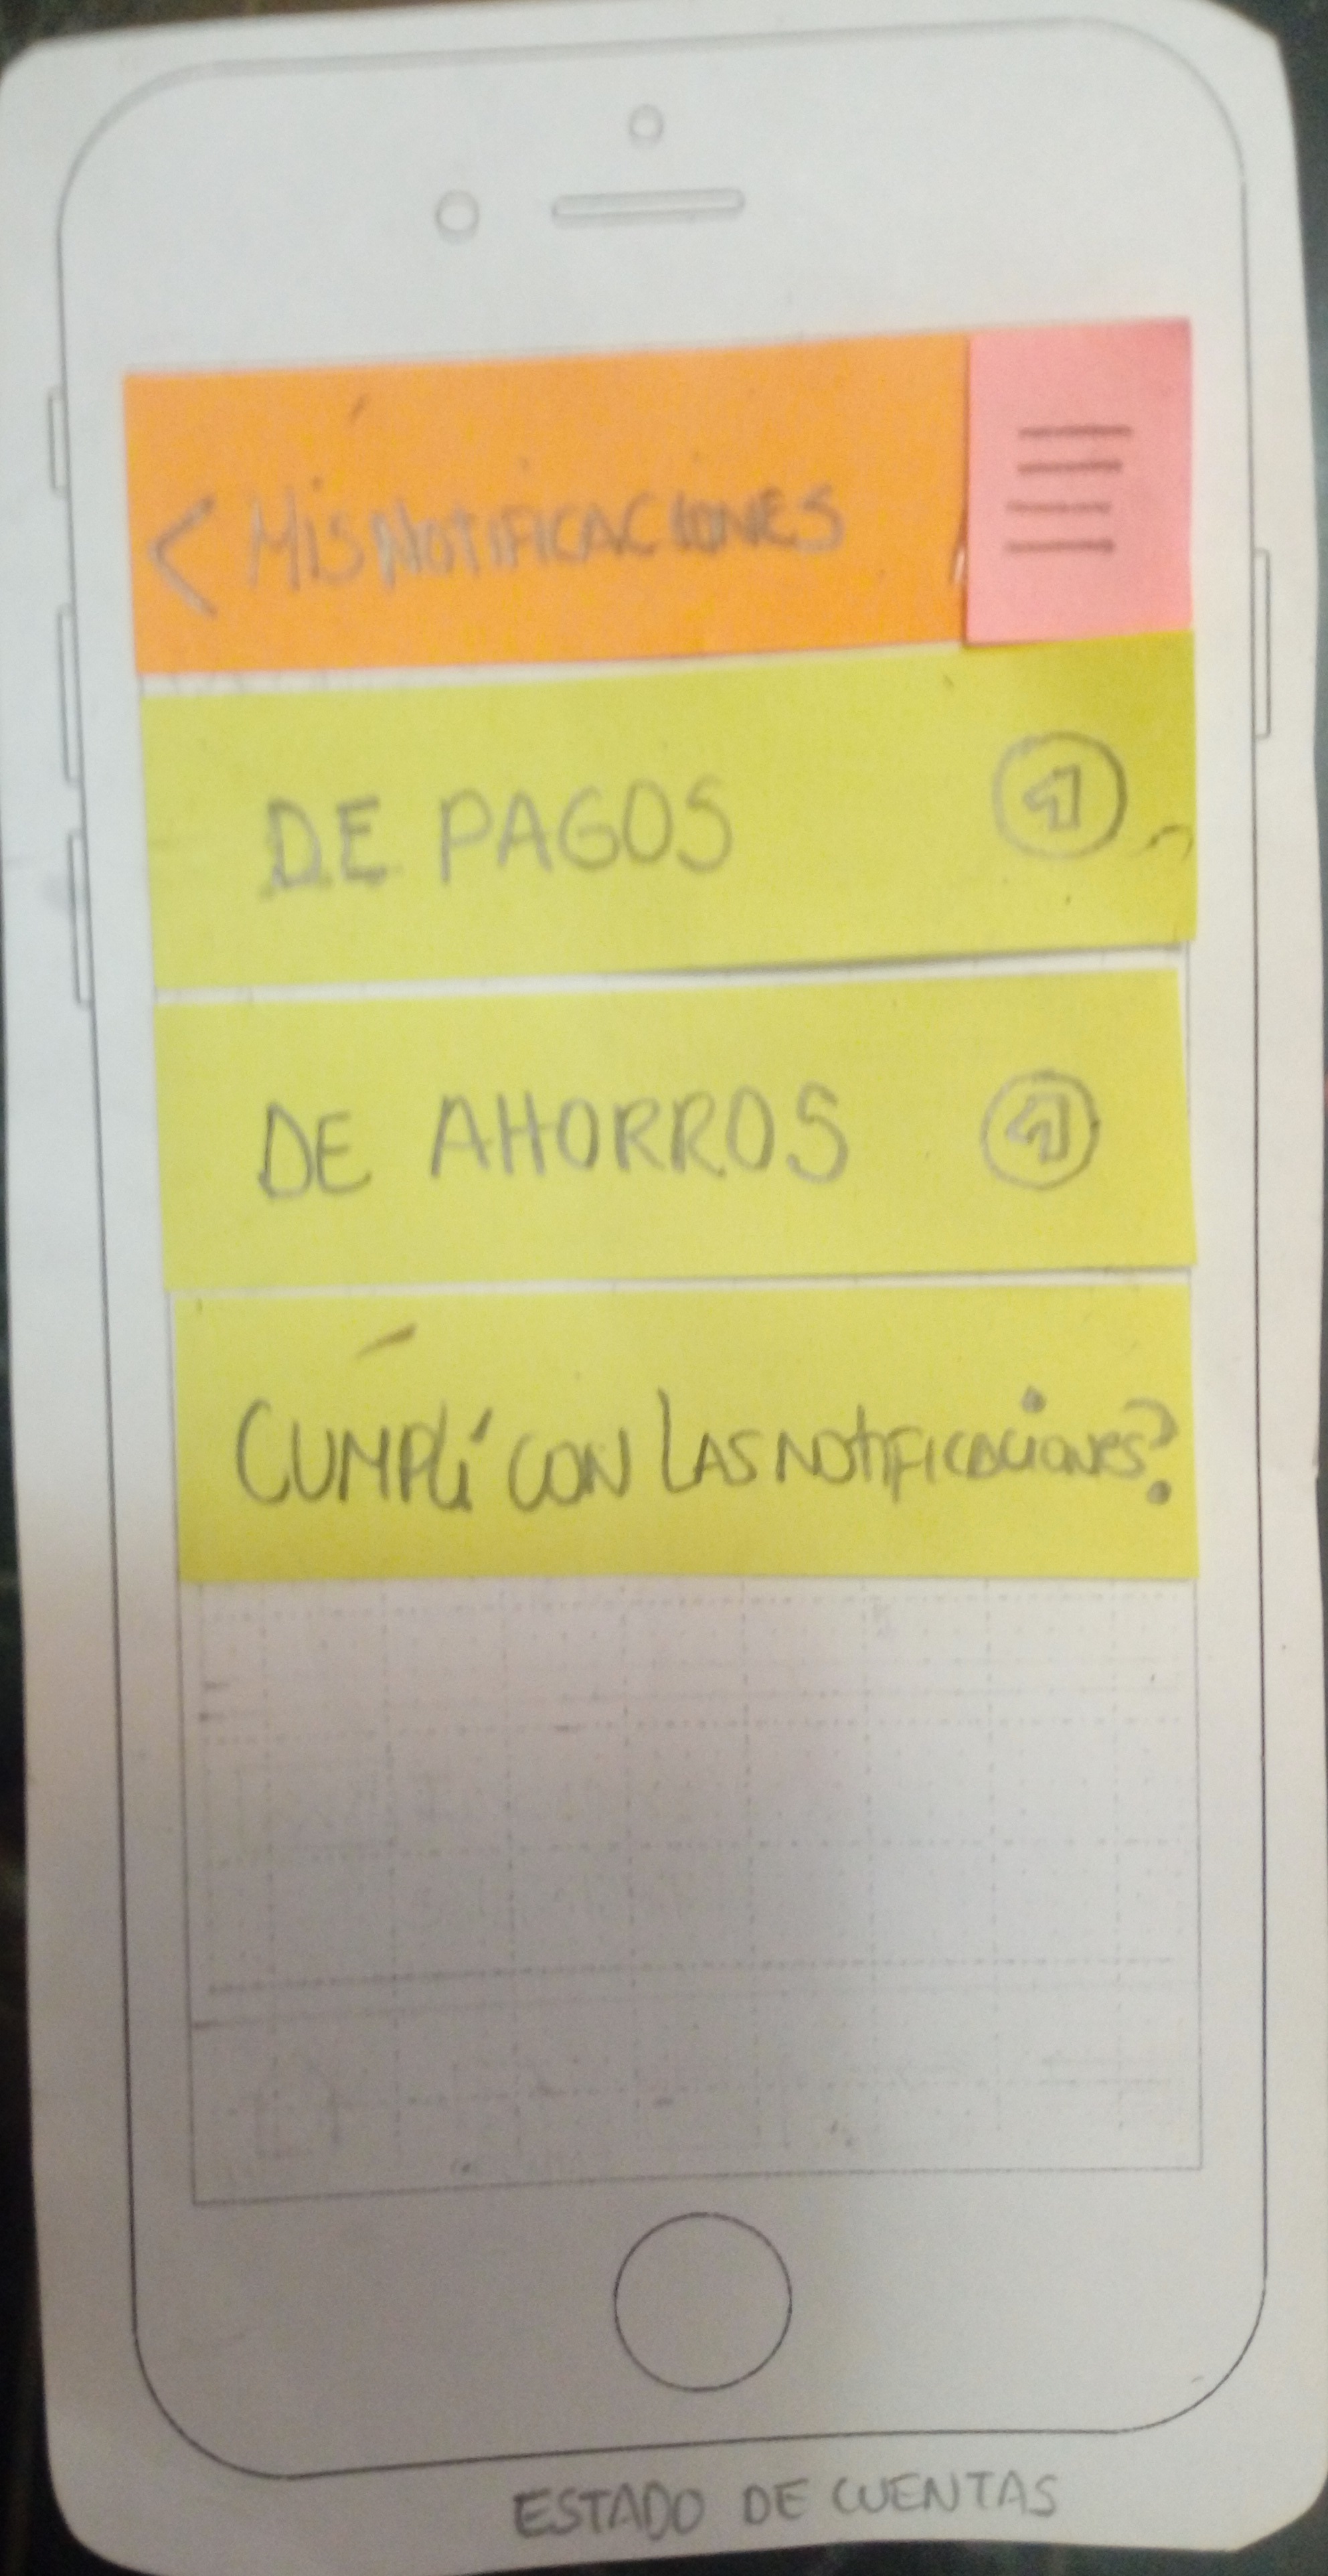 < MIS NOTIFICACIONES
DE PAGOS 1
DE AHORROS 1
CUMPLÍ CON LAS NOTIFICACIONES?
ESTADO DE CUENTAS